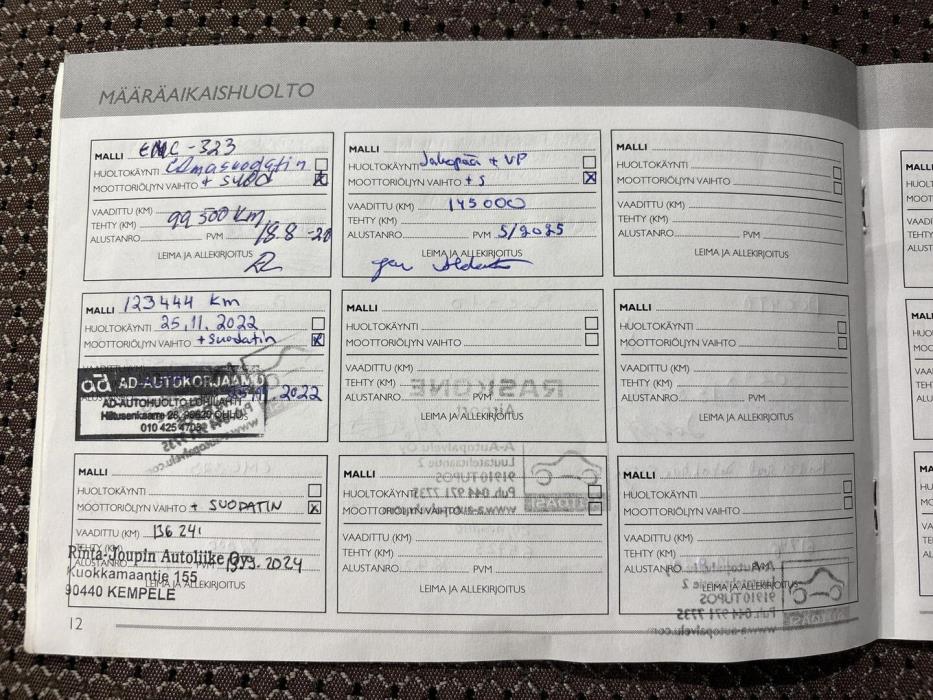 MÄÄRÄAIKAISHUOLTO
MALLI EMC-323
HUOLTOKÄYNTI Ilmasuodatin
MOOTTORIÖLJYN VAIHTO + SUOD
VAADITTU (KM)
TEHTY (KM) 99 500 km
ALUSTANRO. PVM 18.8 -20
LEIMA JA ALLEKIRJOITUS
MALLI
HUOLTOKÄYNTI Jakopää + VP
MOOTTORIÖLJYN VAIHTO + S
VAADITTU (KM) 145000
TEHTY (KM)
ALUSTANRO. PVM 5/2025
LEIMA JA ALLEKIRJOITUS
MALLI
HUOLTOKÄYNTI
MOOTTORIÖLJYN VAIHTO
VAADITTU (KM)
TEHTY (KM)
ALUSTANRO. PVM
LEIMA JA ALLEKIRJOITUS
MALLI 123444 km
HUOLTOKÄYNTI 25.11.2022
MOOTTORIÖLJYN VAIHTO + suodatin
ad AD-AUTOKORJAAMO
.2022
AD-AUTOHUOLTO
010 425
MALLI
HUOLTOKÄYNTI
MOOTTORIÖLJYN VAIHTO
VAADITTU (KM)
TEHTY (KM)
ALUSTANRO. PVM
LEIMA JA ALLEKIRJOITUS
MALLI
HUOLTOKÄYNTI
MOOTTORIÖLJYN VAIHTO
VAADITTU (KM)
TEHTY (KM)
ALUSTANRO. PVM
LEIMA JA ALLEKIRJOITUS
MALLI
HUOLTOKÄYNTI
MOOTTORIÖLJYN VAIHTO + SUODATIN
VAADITTU (KM) 136 241
TEHTY (KM)
Rinta-Joupin Autoliike Oy
ALUSTANRO. PVM .2024
Kuokkamaantie 155
LEIMA JA ALLEKIRJOITUS
90440 KEMPELE
MALLI
HUOLTOKÄYNTI
MOOTTORIÖLJYN VAIHTO
VAADITTU (KM)
TEHTY (KM)
ALUSTANRO. PVM
LEIMA JA ALLEKIRJOITUS
MALLI
HUOLTOKÄYNTI
MOOTTORIÖLJYN VAIHTO
VAADITTU (KM)
TEHTY (KM)
ALUSTANRO. PVM
LEIMA JA ALLEKIRJOITUS
12